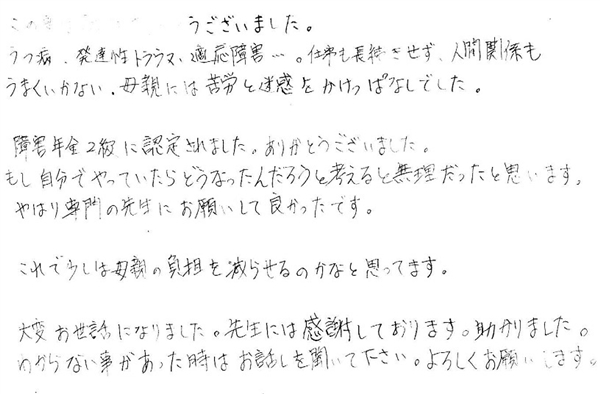 この うございました。
うつ病、発達性トラウマ、適応障害…。仕事も長続きせず、人間関係も
うまくいかない、母親には苦労と迷惑をかけっぱなしでした。
障害年金2級に認定されました。ありがとうございました。
もし自分でやっていたらどうなったんだろうと考えると無理だったと思います。
やはり専門の先生にお願いして良かったです。
これで少しは母親の負担を減らせるのかなと思ってます。
大変お世話になりました。先生には感謝しております。助かりました。
わからない事があった時はお話しを聞いて下さい。よろしくお願いします。